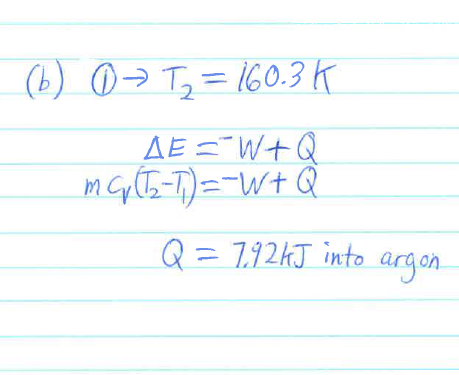 (b) ①→ T₂ = 160.3 K
ΔE = -W + Q
m Cv(T₂-T₁) = -W + Q
Q = 7.92 kJ into argon